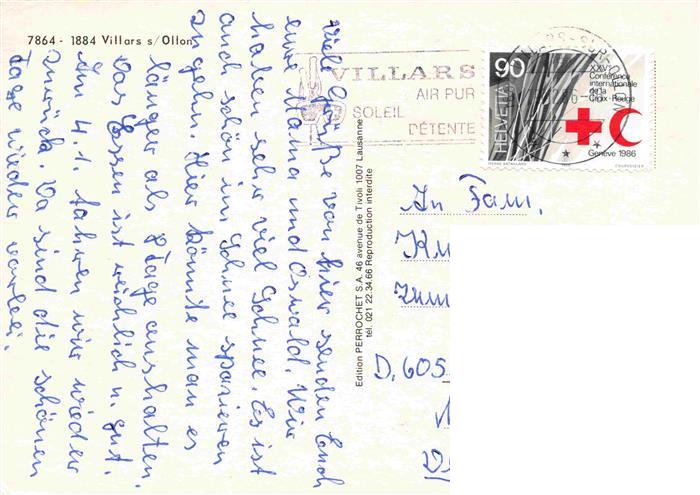 7864 - 1884 Villars s/Ollon
VILLARS
AIR PUR
SOLEIL
DÉTENTE
90
HELVETIA
XXVe
Conférence
internationale
de la
Croix-Rouge
Genève 1986
PIERRE BATAILLARD
COURVOISIER
Viele Grüße von hier senden Euch
eure Mama und Oswald. Wir
haben sehr viel Schnee. Es ist
auch schön im Schnee spazieren
zu gehn. Hier könnte man es
länger als 8 Tage aushalten.
Das Essen ist reichlich u. gut.
Am 4.1. fahren wir wieder
zurück. Da sind die schönen
Tage wieder vorbei.
Edition PERROCHET S.A. 46 avenue de Tivoli 1007 Lausanne
tél. 021 22.34.66 Reproduction interdite
An Fam.
D. 605